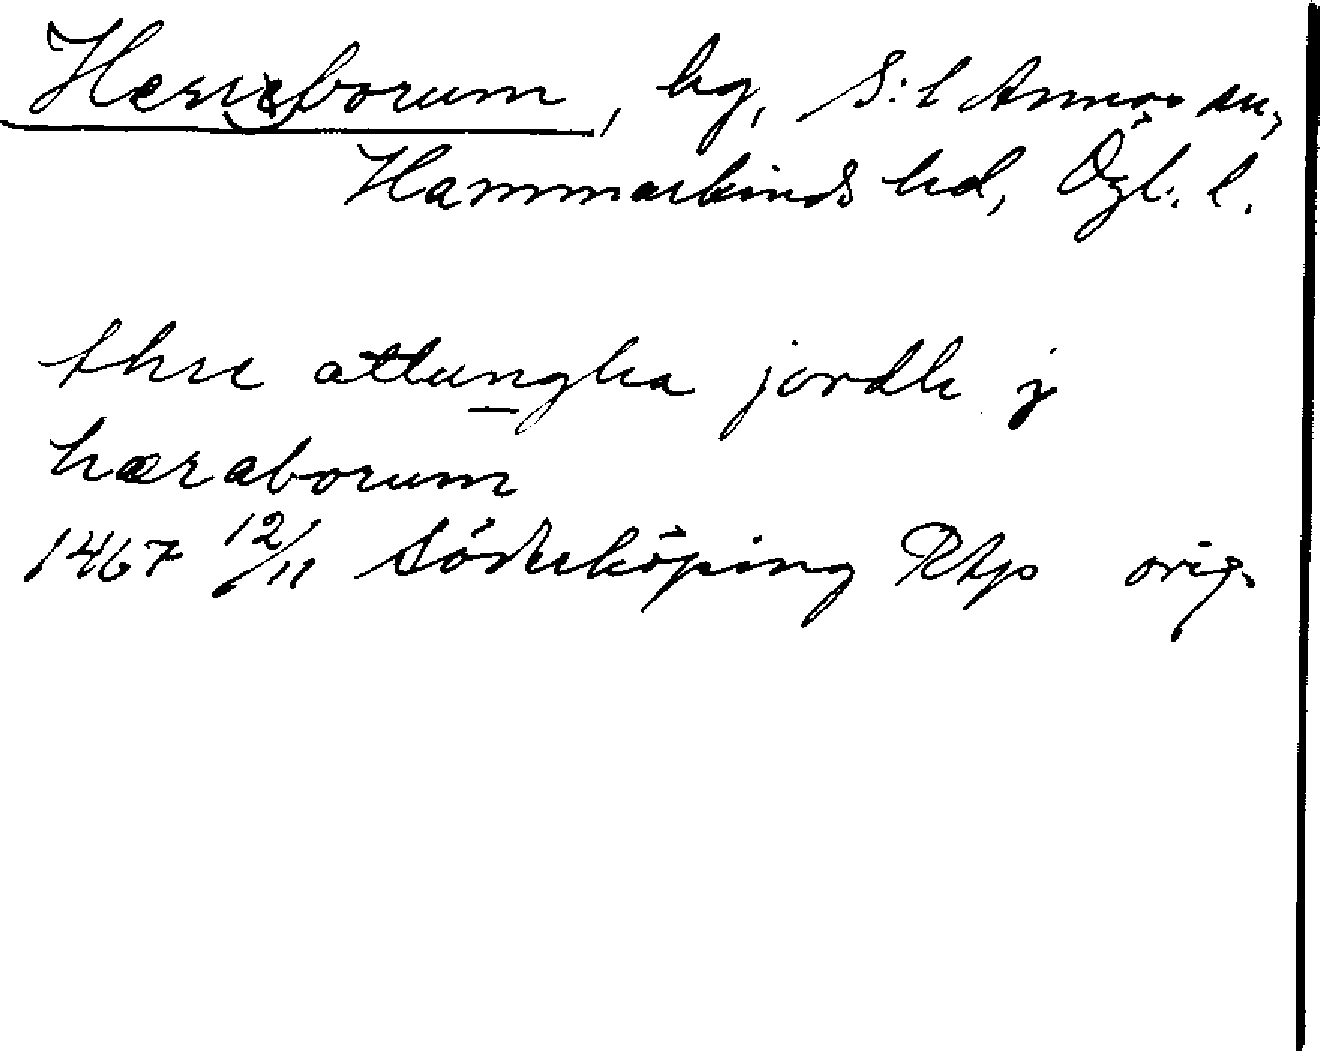 Herreborum, hg, S:t Annas sn,
Hammarkinds hd, Ögl. l.
thre attungha jordh j
hæraborum
1467 12/11 Söderköping RAp orig.